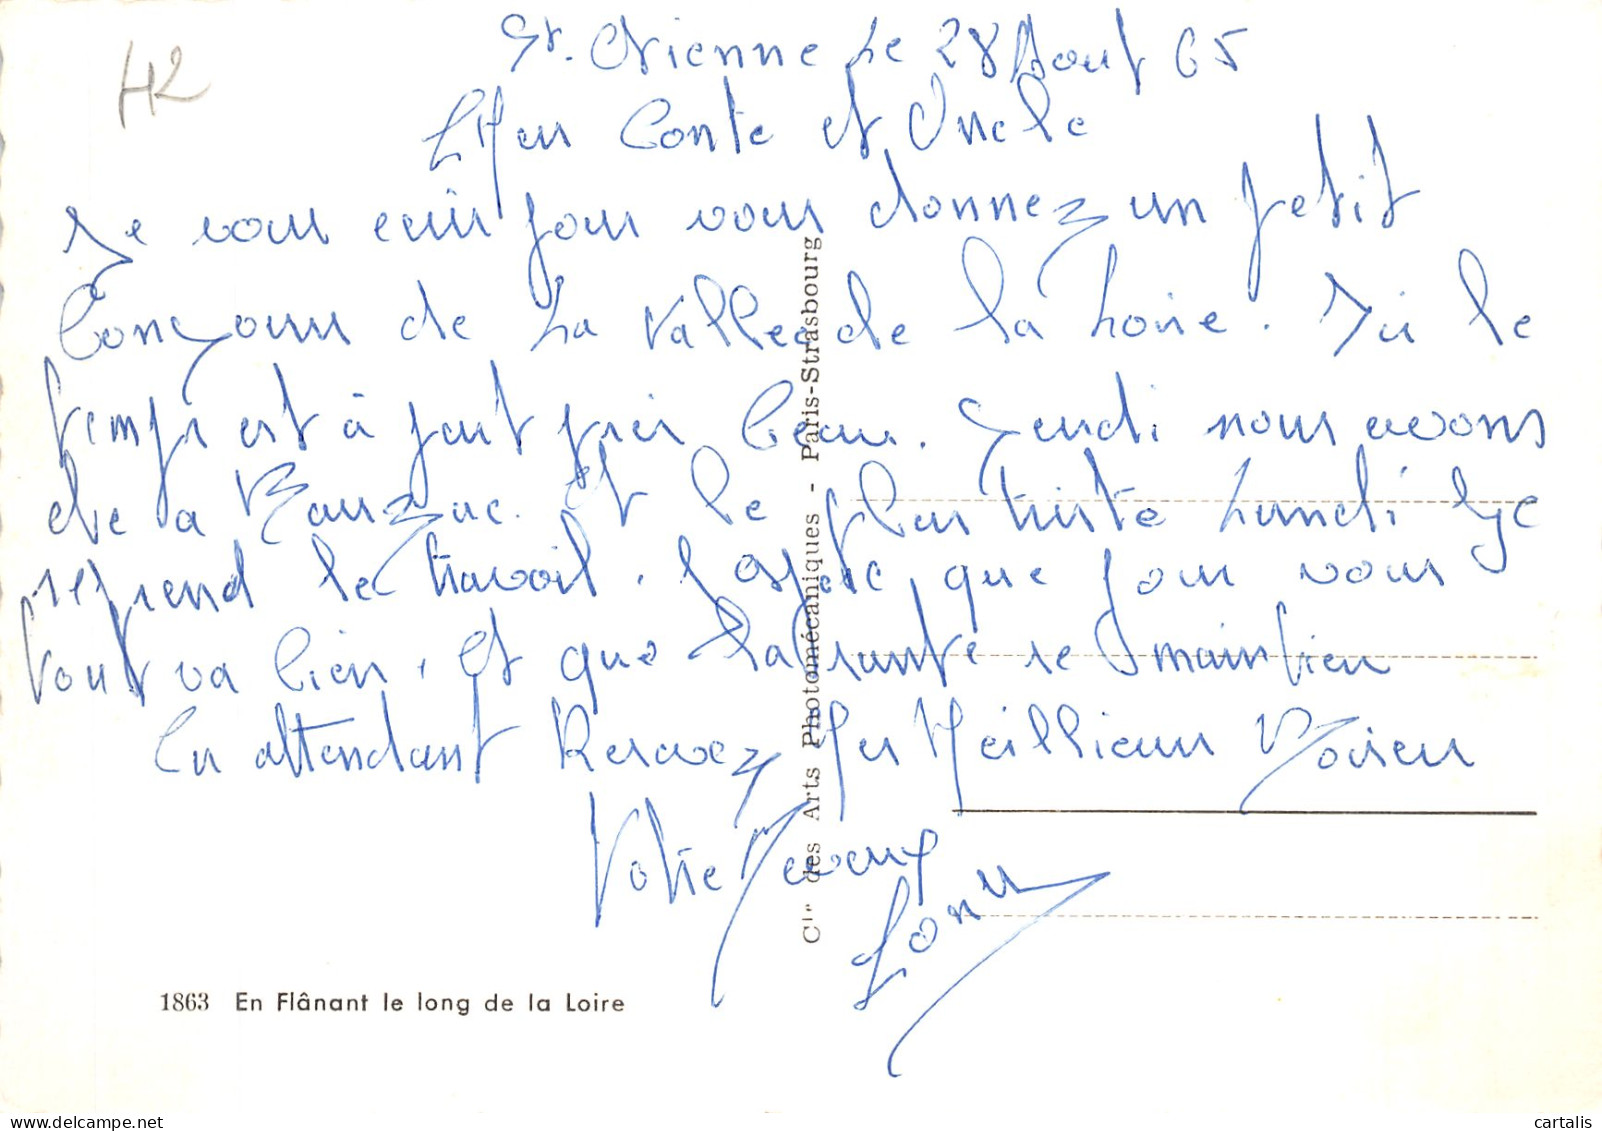 42
St. Etienne Le 28 Aout 65
Cher Tonte et Oncle
Je vous écris pour vous donnez un petit
Bonjour de La Vallée de la Loire. Ici le
temps est à peut près beau. Jeudi nous avons
été a Bauzac. Et le plus triste Lundi Je
reprend le travail. J'espère que pour vous
tout va bien. Et que La santé se maintien
En attendant Recevez Mes Meillieur Baiser
Votre Neveux
1863 En Flânant le long de la Loire
Cie des Arts Photomécaniques - Paris-Strasbourg
cartalis